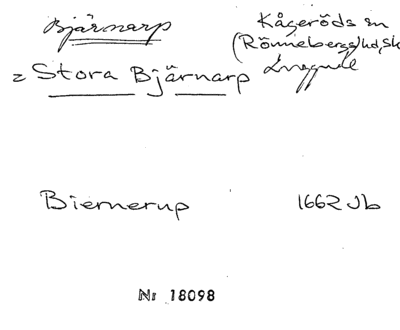 Bjärnarp
Kågeröds sn
(Rönnebergs) hd, Sk
= Stora Bjärnarp
Luggude
Biernerup 1662 Jb
Nr 18098